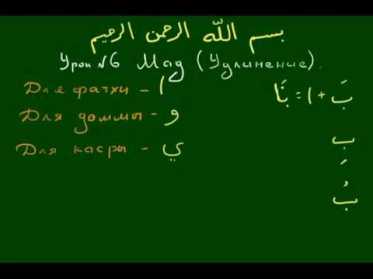 بسم الله الرحمن الرحيم
Урок №6 Мад (Удлинение).
Для фатхи - ا
Для даммы - و
Для касры - ي
بَ + ا = بَا
بِ
بُ